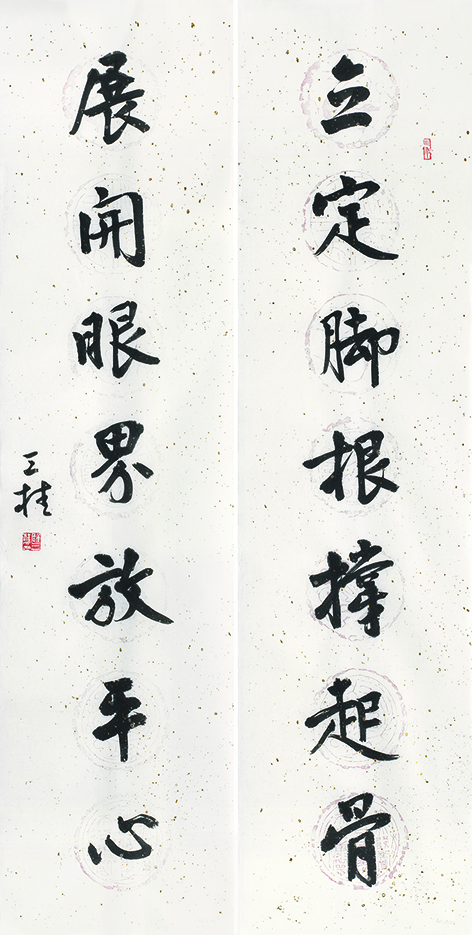 立定脚根撑起骨
展開眼界放平心
三桂